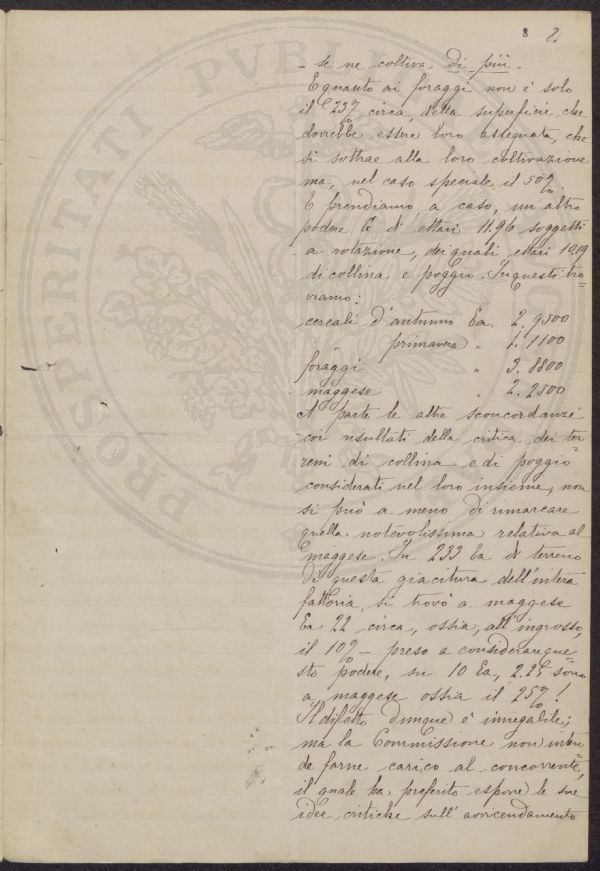 8 8.
- se ne coltiva di più -
E quanto ai foraggi non è solo
il 23% circa, della superficie, che
dovrebbe essere loro assegnata, che
si sottrae alla loro coltivazione
ma, nel caso speciale, il 50%.
E prendiamo a caso, un altro
podere di ettari 11.96 soggetti
a rotazione, dei quali ettari 10.19
di collina e poggio. In questi tro=
viamo:
cereali d'autunno Ea. 2.9500
„ primavera „ 1.1100
foraggi „ 3.8800
maggese „ 2.2500
A parte le altre sconcordanze
coi risultati della critica dei ter=
reni di collina e di poggio
considerati nel loro insieme, non
si può a meno di rimarcare
quella notevolissima relativa al
maggese. In 233 Ea di terreno
di questa giacitura dell'intera
fattoria, si trovò a maggese
Ea 22 circa, ossia, all'ingrosso,
il 10% - preso a considerare que=
sto podere, su 10 Ea, 2.25 sono
a maggese ossia il 25%!
Il difatto dunque è innegabile;
ma la Commissione non inten=
de farne carico al concorrente,
il quale ha preferito esporre le sue
idee critiche sull'avvicendamento
PRO PRITATI PVBLI